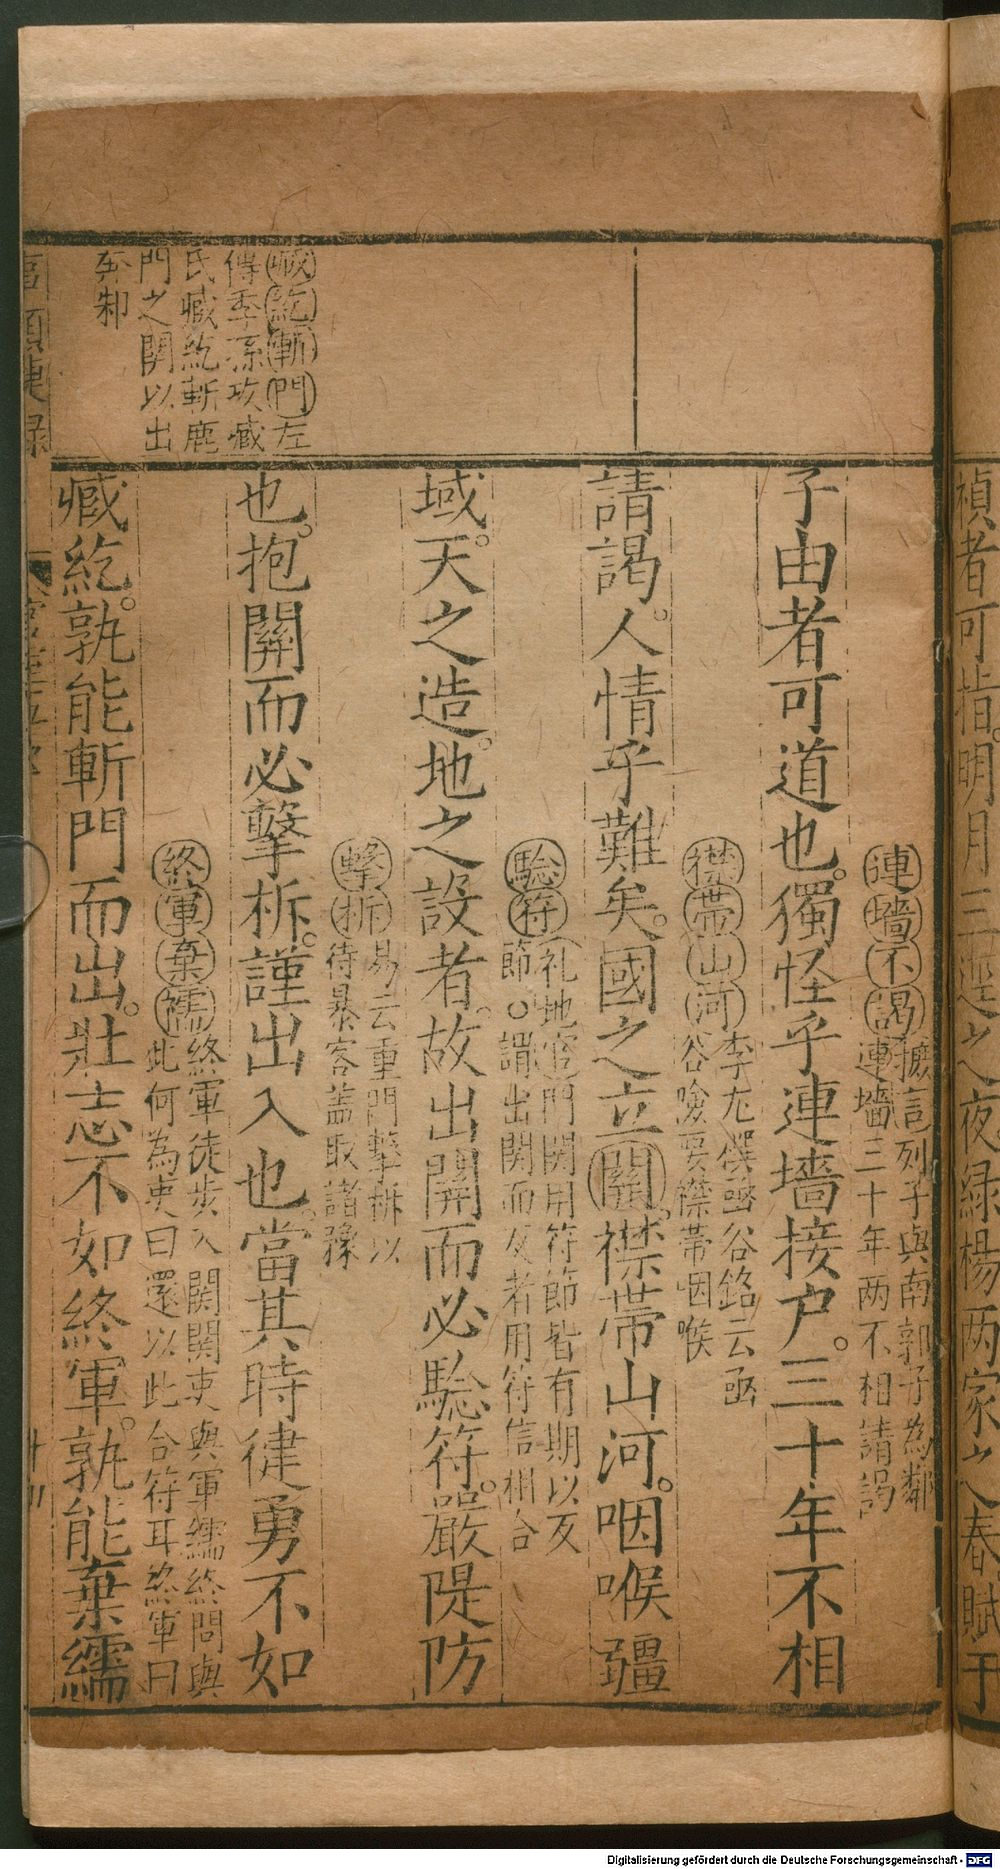 禎者可指。明月三逕之夜。綠楊兩家之春。賦于
連墻不謁
摭言列子與南郭子為鄰
連墻三十年两不相請謁
子由者可道也。獨怪乎連墻接户。三十年不相
襟帶山河
李尤撰函谷銘云函
谷嶮要襟帶咽喉
請謁。人情乎難矣。國之立關。襟帶山河。咽喉疆
驗符
礼地官門関用符節皆有期以反
節○謂出関而反者用符信相合
域。天之造。地之設者。故出關而必驗符。嚴隄防
擊柝
易云重門擊柝以
待暴客蓋取諸豫
也。抱關而必擊柝。謹出入也。當其時律勇不如
終軍棄繻
終軍徒步入関関吏與軍繻終問與
此何為吏曰還以此合符耳終軍曰
臧紇。孰能斬門而出。壯志不如終軍。孰能棄繻
臧紇斬門左
傳季孫攻臧
氏臧紇斬鹿
門之関以出
奔邾
Digitalisierung gefördert durch die Deutsche Forschungsgemeinschaft - DFG